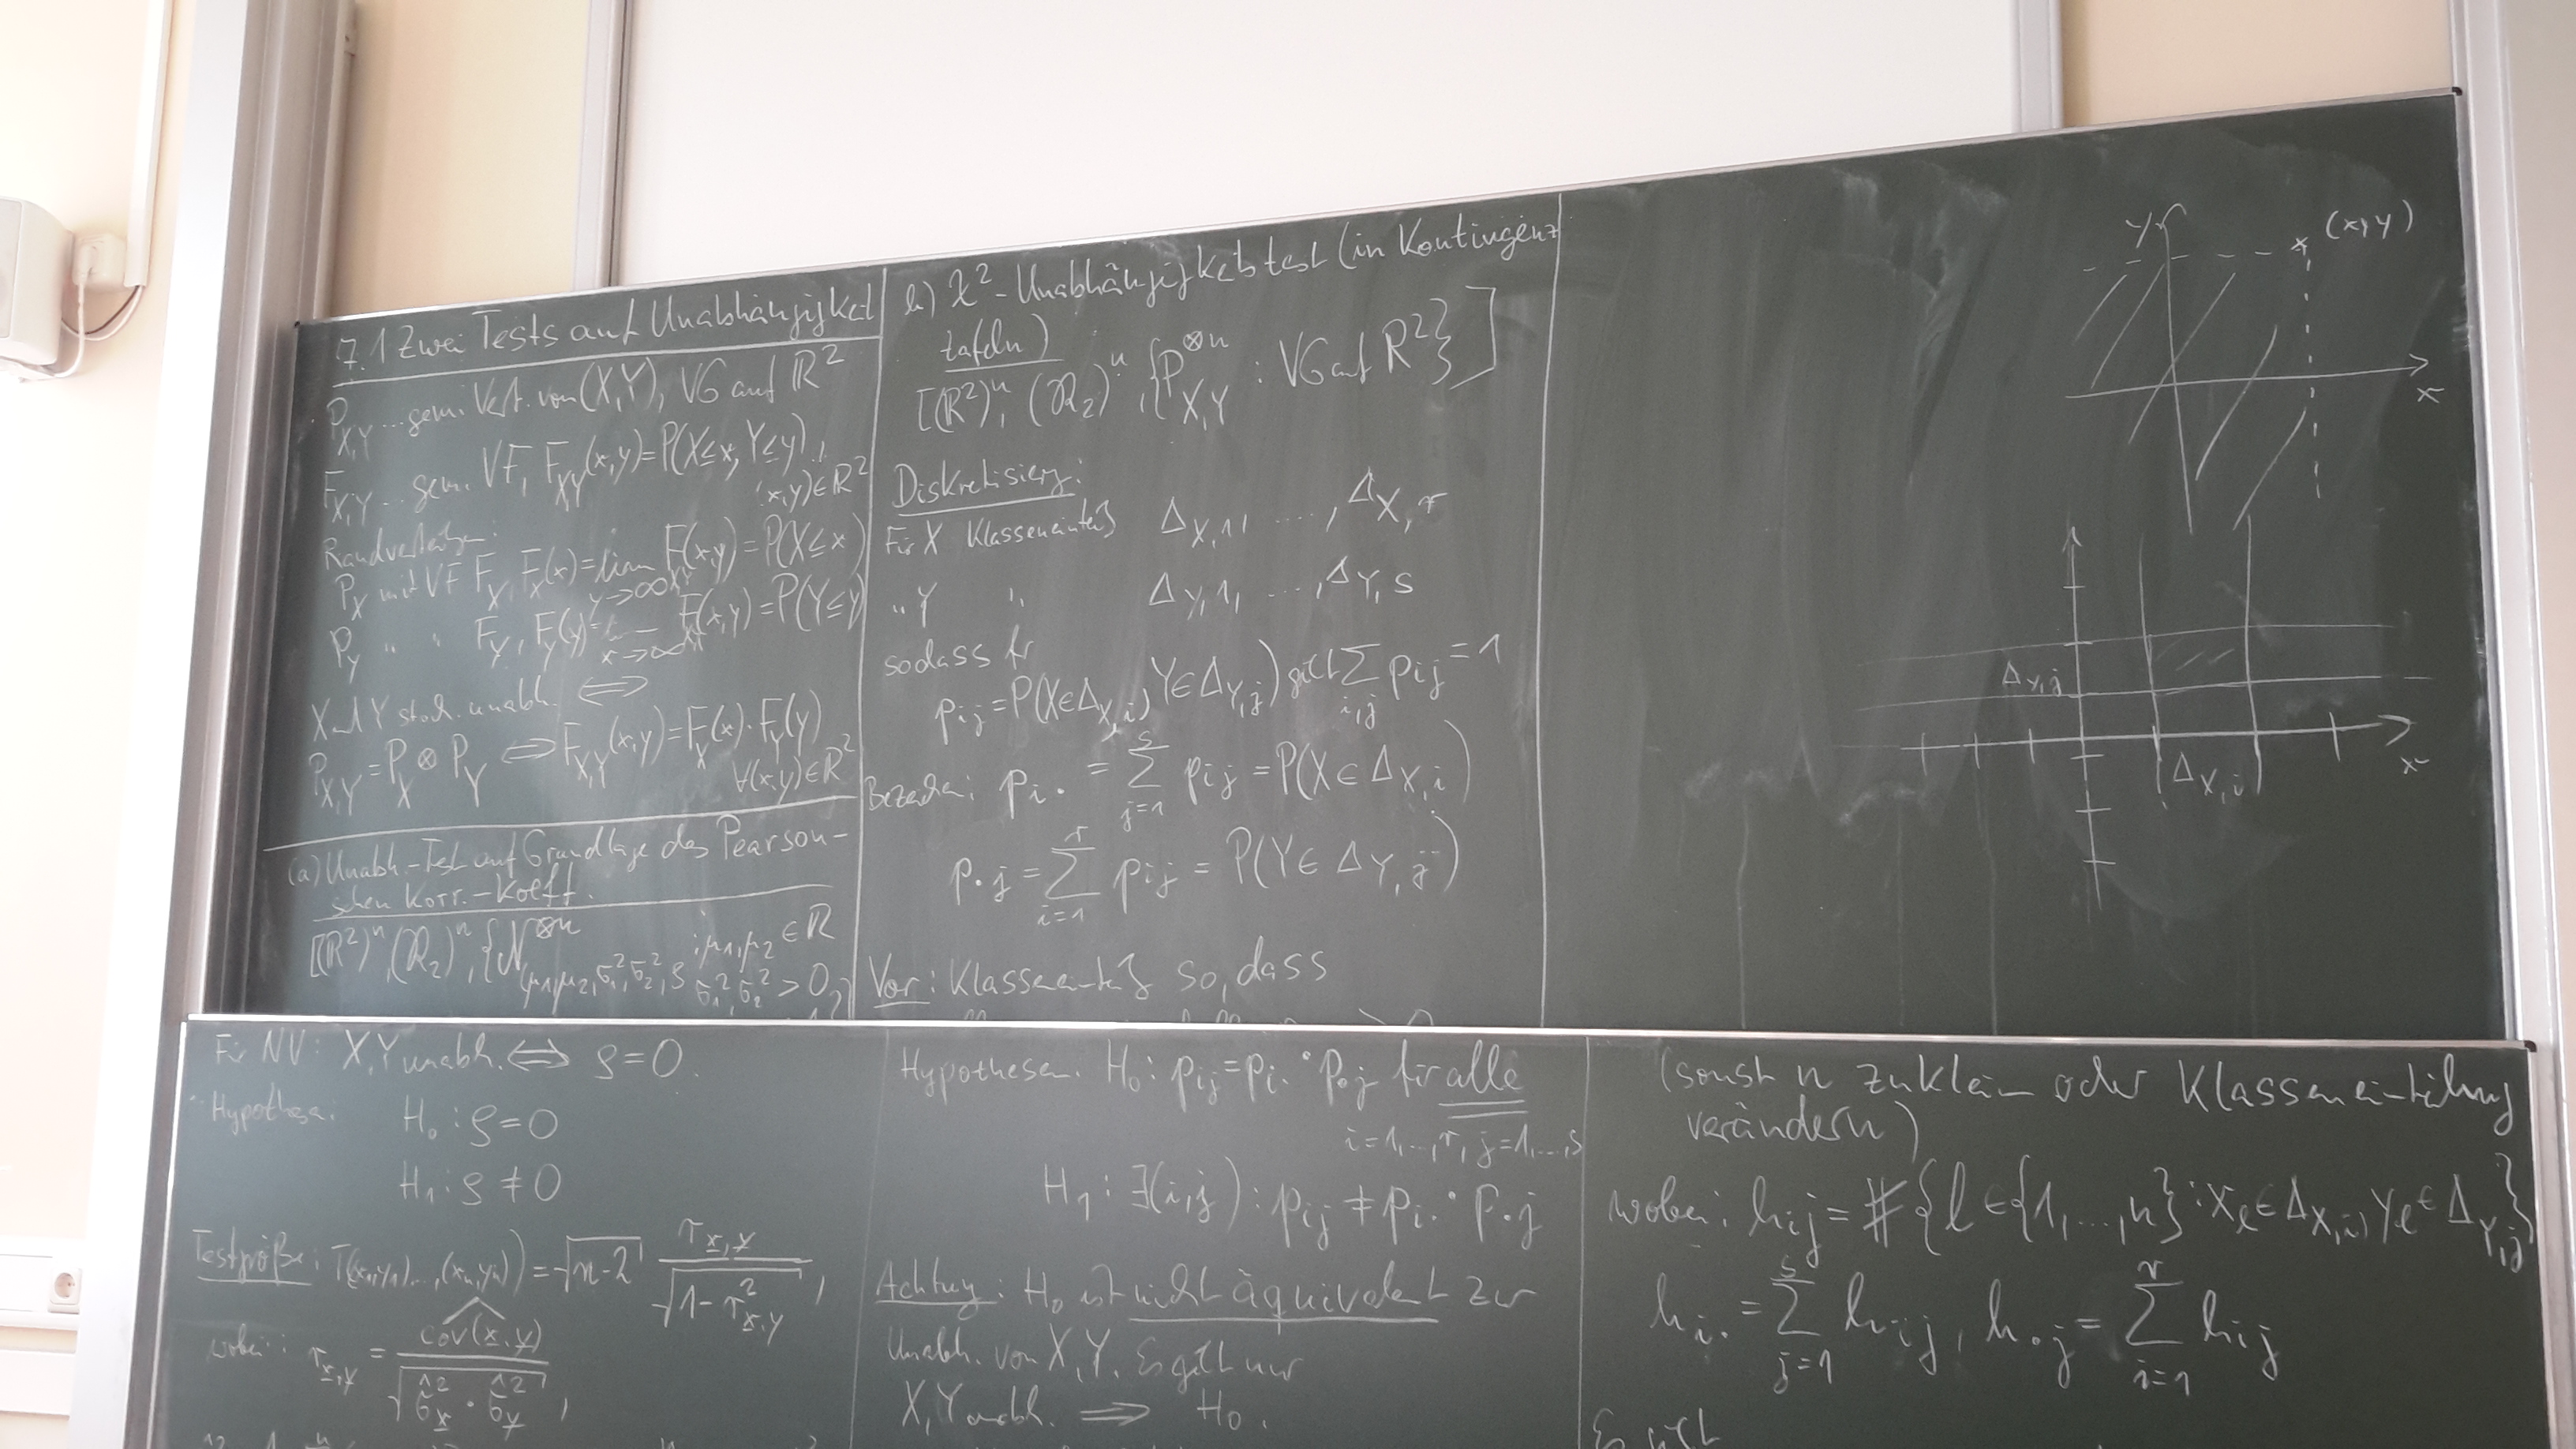 7.1 Zwei Tests auf Unabhängigkeit
P_{X,Y} ... gem. Vert. von (X,Y), VG auf ℝ²
F_{X,Y} ... gem. VF, F_{X,Y}(x,y)=P(X≤x, Y≤y),
(x,y)∈ℝ²
Randverteilgn:
P_X mit VF F_X, F_X(x)=lim_{y→∞} F_{X,Y}(x,y)=P(X≤x)
P_Y " " F_Y, F_Y(y)= _{x→∞} F_{X,Y}(x,y)=P(Y≤y)
X und Y stoch. unabh. ⟺
P_{X,Y}=P_X⊗P_Y ⟺ F_{X,Y}(x,y)=F_X(x)·F_Y(y)
∀(x,y)∈ℝ²
(a) Unabh.-Test auf Grundlage des Pearson-
schen Korr.-Koeff.
[(ℝ²)ⁿ,(ℛ₂)ⁿ,{𝒩^{⊗n}_{μ₁,μ₂,σ₁²,σ₂²,ρ} : μ₁,μ₂∈ℝ
σ₁²,σ₂²>0,
b) χ²-Unabhängigkeitstest (in Kontingenz
tafeln)
[(ℝ²)ⁿ,(ℛ₂)ⁿ,{P^{⊗n}_{X,Y} : VG auf ℝ²}]
Diskretisierg:
Für X Klasseneinteilg Δ_{X,1}, ..., Δ_{X,r}
" Y " Δ_{Y,1}, ..., Δ_{Y,s}
sodass für
p_{ij}=P(X∈Δ_{X,i}, Y∈Δ_{Y,j}) gilt ∑_{i,j} p_{ij}=1
Bezeichn: p_{i·} = ∑_{j=1}^{s} p_{ij} = P(X∈Δ_{X,i})
p_{·j} = ∑_{i=1}^{r} p_{ij} = P(Y∈Δ_{Y,j})
Vor: Klasseneinteilg so, dass
y
(x,y)
x
Δ_{Y,j}
Δ_{X,i}
x
Für NV: X,Y unabh. ⟺ ρ=0.
Hypothesen:
H₀: ρ=0
H₁: ρ≠0
Testgröße: T((x₁,y₁),...,(xₙ,yₙ))=√(n-2) r_{x,y}/√(1-r²_{x,y}),
wobei: r_{x,y} = \widehat{cov}(x,y)/√(σ̂²_x · σ̂²_y),
Hypothesen. H₀: p_{ij}=p_{i·}·p_{·j} für alle
i=1,...,r, j=1,...,s
H₁: ∃(i,j): p_{ij}≠p_{i·}·p_{·j}
Achtung: H₀ ist nicht äquivalent zur
Unabh. von X,Y. Es gilt nur
X,Y unabh. ⟹ H₀.
(sonst n zu klein oder Klasseneinteilung
verändern)
wobei: h_{ij}=#{l∈{1,...,n}: X_l∈Δ_{X,i}, Y_l∈Δ_{Y,j}}
h_{i·}=∑_{j=1}^{s} h_{ij}, h_{·j}=∑_{i=1}^{r} h_{ij}
Es gilt